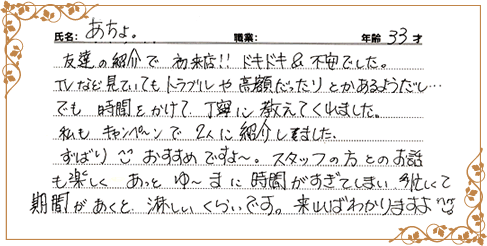 氏名: あちょ。 職業: 年齢 33才
友達の紹介で 初来店!! ドキドキ&不安でした。
TVなど見ていてもトラブルや高額だったりとかあるようだし…
でも 時間をかけて 丁寧に 教えてくれました。
私も キャンペーンで 2人に紹介しました。
ずばり おすすめですよ〜。スタッフの方とのお話
も楽しく あっとゆ〜まに時間がすぎてしまい 忙しくて
期間があくと、淋しいくらいです。来ればわかりますよ